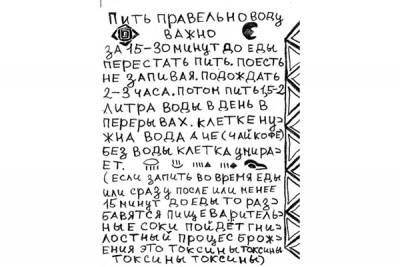 Пить правельно воду
важно
за 15-30 минут до еды
перестать пить. Поесть
не запивая. Подождать
2-3 часа. Потом пить 1,5-2
литра воды в день в
перерывах. Клетке ну-
жна вода а не (чай кофе)
Без воды клетка умира-
ет.
(Если запить во время еды
или сразу после или менее
15 минут до еды то раз-
бавятся пищеваритель-
ные соки пойдёт гни-
лостный процес брож-
ения это токсины токсины
токсины токсины)